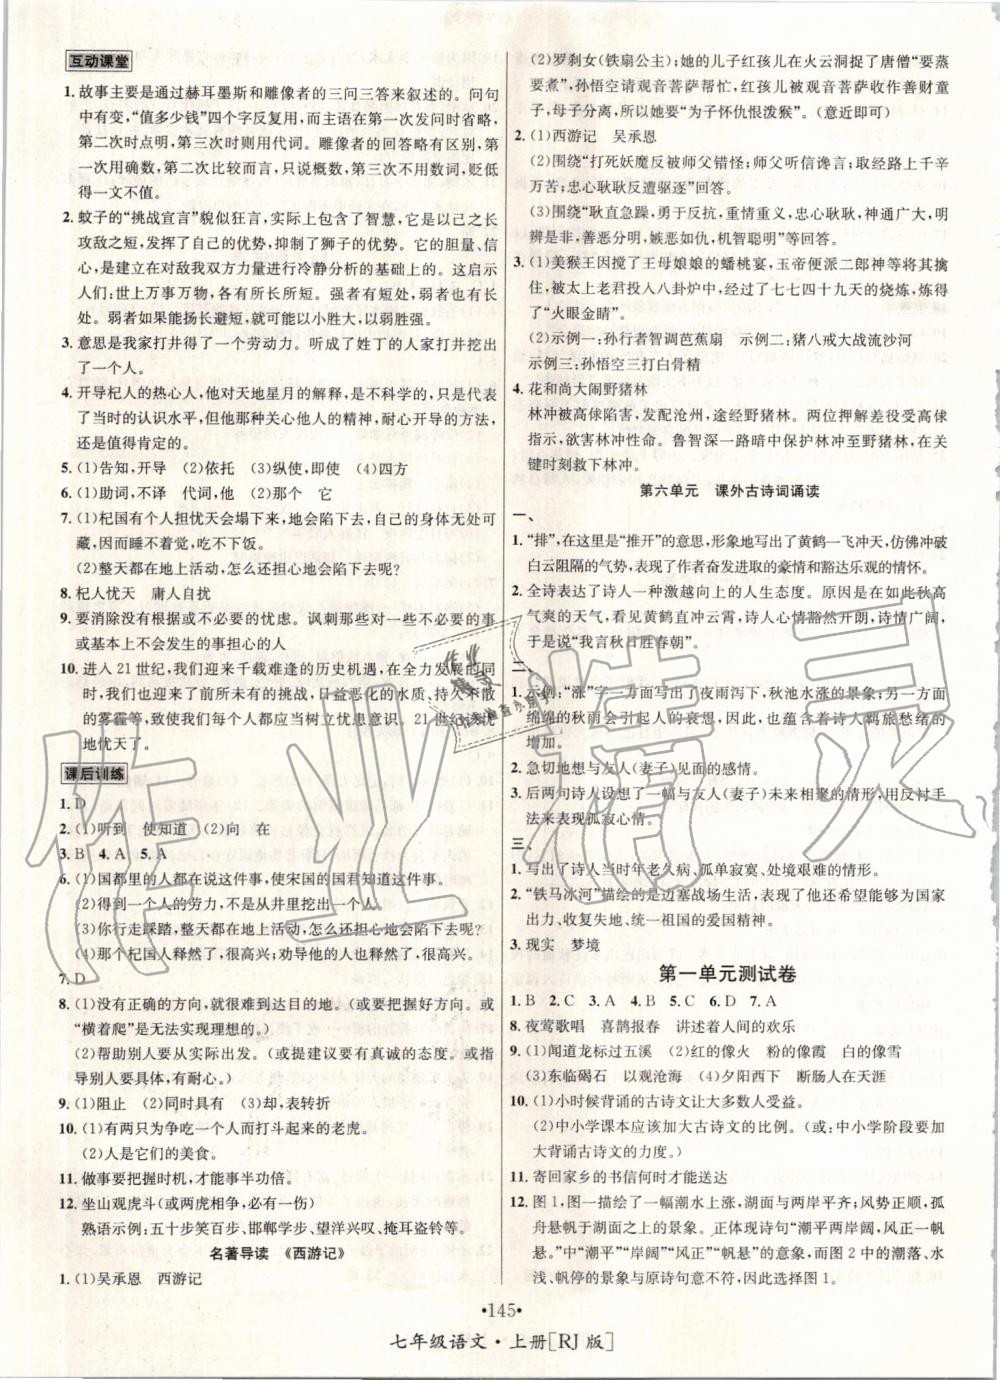 互动课堂
1. 故事主要是通过赫耳墨斯和雕像者的三问三答来叙述的。问句
中有变,“值多少钱”四个字反复用,而主语在第一次发问时省略,
第二次时点明,第三次时则用代词。雕像者的回答略有区别,第
一次用确数,第二次比较而言,只说概数,第三次不用数词,贬低
得一文不值。
2. 蚊子的“挑战宣言”貌似狂言,实际上包含了智慧,它是以己之长
攻敌之短,发挥了自己的优势,抑制了狮子的优势。它的胆量、信
心,是建立在对敌我双方力量进行冷静分析的基础上的。这启示
人们:世上万事万物,各有所长所短。强者有短处,弱者也有长
处。弱者如果能扬长避短,就可能以小胜大,以弱胜强。
3. 意思是我家打井得了一个劳动力。听成了姓丁的人家打井挖出
了一个人。
4. 开导杞人的热心人,他对天地星月的解释,是不科学的,只是代表
了当时的认识水平,但他那种关心他人的精神,耐心开导的方法,
还是值得肯定的。
5. (1)告知,开导 (2)依托 (3)纵使,即使 (4)四方
6. (1)助词,不译 代词,他 (2)代词,它
7. (1)杞国有个人担忧天会塌下来,地会陷下去,自己的身体无处可
藏,因而睡不着觉,吃不下饭。
(2)整天都在地上活动,怎么还担心地会陷下去呢?
8. 杞人忧天 庸人自扰
9. 要消除没有根据或不必要的忧虑。讽刺那些对一些不必要的事
或基本上不会发生的事担心的人
10. 进入21世纪,我们迎来千载难逢的历史机遇,在全力发展的同
时,我们也迎来了前所未有的挑战,日益恶化的水质、持久不散
的雾霾等,致使我们每个人都应当树立忧患意识。21世纪,杞
地忧天了。
课后训练
1. D
2. (1)听到 使知道 (2)向 在
3. B 4. A 5. A
6. (1)国都里的人都在说这件事,使宋国的国君知道这件事。
(2)得到一个人的劳力,不是从井里挖出一个人。
(3)你行走踩踏,整天都在地上活动,怎么还担心地会陷下去呢?
(4)那个杞国人释然了,很高兴;劝导他的人也释然了,很高兴。
7. D
8. (1)没有正确的方向,就很难到达目的地。(或要把握好方向。或
“横着爬”是无法实现理想的。)
(2)帮助别人要从实际出发。(或提建议要有真诚的态度。或指
导别人要具体。)
9. (1)阻止 (2)同时具有 (3)却,表转折
10. (1)有两只为争吃一个人而打斗起来的老虎。
(2)人是它们的美食。
11. 做事要把握时机,才能事半功倍。
12. 坐山观虎斗(或两虎相争,必有一伤)
熟语示例:五十步笑百步、邯郸学步、望洋兴叹、掩耳盗铃等。
名著导读 《西游记》
1. (1)吴承恩 西游记
(2)罗刹女(铁扇公主);她的儿子红孩儿在火云洞捉了唐僧“要蒸
要煮”,孙悟空请观音菩萨帮忙,红孩儿被观音菩萨收作善财童
子,母子分离,所以她要“为子怀仇恨泼猴”。(意近即可)
2. (1)西游记 吴承恩
(2)围绕“打死妖魔反被师父错怪;师父听信谗言;取经路上千辛
万苦;忠心耿耿反遭驱逐”回答。
(3)围绕“耿直急躁,勇于反抗,重情重义,忠心耿耿,神通广大,明
辨是非,善恶分明,嫉恶如仇,机智聪明”等回答。
3. (1)美猴王因搅了王母娘娘的蟠桃宴,玉帝便派二郎神等将其擒
住,被太上老君投入八卦炉中,经过了七七四十九天的烧炼,炼得
了“火眼金睛”。
(2)示例一:孙行者智调芭蕉扇 示例二:猪八戒大战流沙河
示例三:孙悟空三打白骨精
4. 花和尚大闹野猪林
林冲被高俅陷害,发配沧州,途经野猪林。两位押解差役受高俅
指示,欲害林冲性命。鲁智深一路暗中保护林冲至野猪林,在关
键时刻救下林冲。
第六单元 课外古诗词诵读
一、
1. “排”,在这里是“推开”的意思,形象地写出了黄鹤一飞冲天,仿佛冲破
白云阻隔的气势,表现了作者奋发进取的豪情和豁达乐观的情怀。
2. 全诗表达了诗人一种激越向上的人生态度。原因是在如此秋高
气爽的天气里,看见黄鹤直冲云霄,诗人心情豁然开朗,诗情广阔,
于是说“我言秋日胜春朝”。
二、
1. 示例:“涨”字一方面写出了夜雨泻致、秋池水涨的景象;另一方面
绵绵的秋雨会引起人的衰烦、因此,也蕴含着诗人羁旅愁绪的
增加。
2. 急切地想与友人(妻子)见面的感情。
3. 后两句诗人设想了一幅与友人(妻子)将来相聚的情形,用反衬手
法来表现孤寂心情。
三、
1. 写出了诗人当时年老久病、孤单寂寞、处境艰难的情形。
2. “铁马冰河”描绘的是边塞战场生活,表现了他还希望能够为国
出力,收复失地、统一祖国的爱国精神。
3. 现实 梦境
第一单元测试卷
1. B 2. C 3. A 4. B 5. C 6. D 7. A
8. 夜莺歌唱 喜鹊报春 讲述着人间的欢乐
9. (1)闻道龙标过五溪 (2)红的像火 粉的像霞 白的像雪
(3)东临碣石 以观沧海 (4)夕阳西下 断肠人在天涯
10. (1)小时候背诵的古诗文让大多数人受益。
(2)中小学课本应该加大古诗文的比例。(或:中小学应该加大
背诵古诗文的力度。)
11. 寄回家乡的书信何时才能送达
12. 图1,图一描绘了一幅潮水上涨,湖面与两岸平齐;风势正顺,孤
舟悬于湖面之上的景象。正体现诗句“潮平两岸阔,风正一帆
悬。”中“潮平”“岸阔”“风正”“帆悬”的景象,而图2中的潮落、水
浅、帆停的景象与原诗句意不符,因此选择图1。
·145·
七年级语文·上册[RJ版]
作业精灵